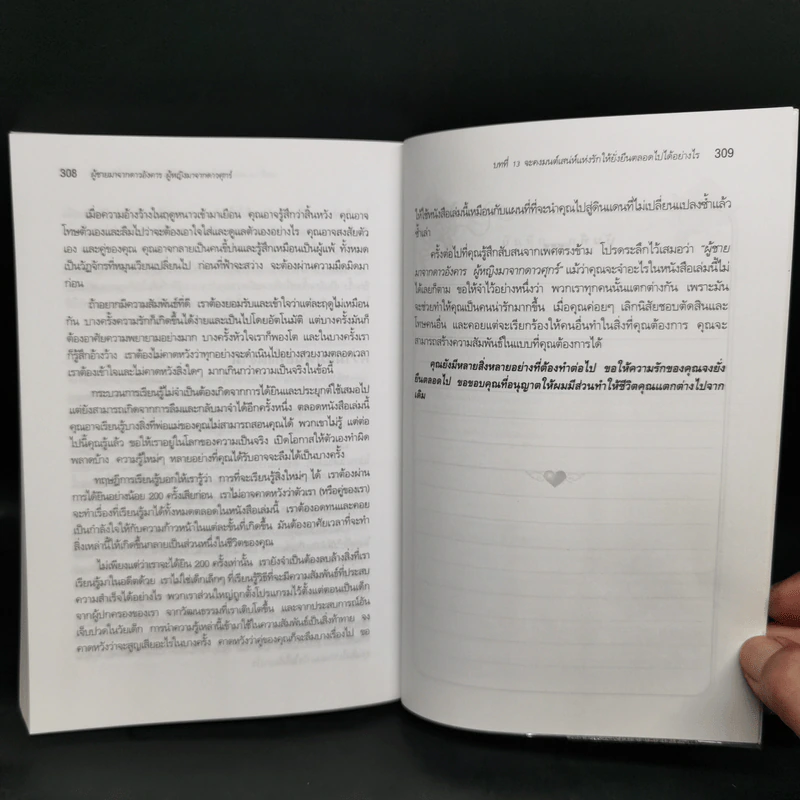 308 ผู้ชายมาจากดาวอังคาร ผู้หญิงมาจากดาวศุกร์
เมื่อความอ้างว้างในฤดูหนาวเข้ามาเยือน คุณอาจรู้สึกว่าสิ้นหวัง คุณอาจ
โทษตัวเองและลืมไปว่าจะต้องเอาใจใส่และดูแลตัวเองอย่างไร คุณอาจสงสัยตัว
เอง และคู่ของคุณ คุณอาจกลายเป็นคนขี้บ่นและรู้สึกเหมือนเป็นผู้แพ้ ทั้งหมด
เป็นวัฏจักรที่หมุนเวียนเปลี่ยนไป ก่อนที่ฟ้าจะสว่าง จะต้องผ่านความมืดมิดมา
ก่อน
ถ้าอยากมีความสัมพันธ์ที่ดี เราต้องยอมรับและเข้าใจว่าแต่ละฤดูไม่เหมือน
กัน บางครั้งความรักก็เกิดขึ้นได้ง่ายและเป็นไปโดยอัตโนมัติ แต่บางครั้งมันก็
ต้องอาศัยความพยายามอย่างมาก บางครั้งหัวใจเราก็พองโต และในบางครั้งเรา
ก็รู้สึกอ้างว้าง เราต้องไม่คาดหวังว่าทุกอย่างจะดำเนินไปอย่างสวยงามตลอดเวลา
เราต้องเข้าใจและไม่คาดหวังสิ่งใดๆ มากเกินกว่าความเป็นจริงในข้อนี้
กระบวนการเรียนรู้ไม่จำเป็นต้องเกิดจากการได้ยินและประยุกต์ใช้เสมอไป
แต่ยังสามารถเกิดจากการลืมและกลับมาจำได้อีกครั้งหนึ่ง ตลอดหนังสือเล่มนี้
คุณอาจเรียนรู้บางสิ่งที่พ่อแม่ของคุณไม่สามารถสอนคุณได้ พวกเขาไม่รู้ แต่ต่อ
ไปนี้คุณรู้แล้ว ขอให้เราอยู่ในโลกของความเป็นจริง เปิดโอกาสให้ตัวเองทำผิด
พลาดบ้าง ความรู้ใหม่ๆ หลายอย่างที่คุณได้รับอาจจะลืมได้เป็นบางครั้ง
ทฤษฎีการเรียนรู้บอกให้เรารู้ว่า การที่จะเรียนรู้สิ่งใหม่ๆ ได้ เราต้องผ่าน
การได้ยินอย่างน้อย 200 ครั้งเสียก่อน เราไม่อาจคาดหวังว่าตัวเรา (หรือคู่ของเรา)
จะทำเรื่องที่เรียนรู้มาได้ทั้งหมดตลอดในหนังสือเล่มนี้ เราต้องอดทนและคอย
เป็นกำลังใจให้กับความก้าวหน้าในแต่ละขั้นที่เกิดขึ้น มันต้องอาศัยเวลาที่จะทำ
สิ่งเหล่านี้ให้เกิดขึ้นกลายเป็นส่วนหนึ่งในชีวิตของคุณ
ไม่เพียงแต่ว่าเราจะได้ยิน 200 ครั้งเท่านั้น เรายังจำเป็นต้องลบล้างสิ่งที่เรา
เรียนรู้มาในอดีตด้วย เราไม่ใช่เด็กเล็กๆ ที่เรียนรู้วิธีที่จะมีความสัมพันธ์ที่ประสบ
ความสำเร็จได้อย่างไร พวกเราส่วนใหญ่ถูกตั้งโปรแกรมไว้ตั้งแต่ตอนเป็นเด็ก
จากผู้ปกครองของเรา จากวัฒนธรรมที่เราเติบโตขึ้น และจากประสบการณ์อัน
เจ็บปวดในวัยเด็ก การนำความรู้เหล่านี้เข้ามาใช้ในความสัมพันธ์เป็นสิ่งท้าทาย จง
คาดหวังว่าจะสูญเสียอะไรในบางครั้ง คาดหวังว่าคู่ของคุณก็จะลืมบางเรื่องไป ขอ
บทที่ 13 จะคงมนต์เสน่ห์แห่งรักให้ยั่งยืนตลอดไปได้อย่างไร 309
ให้ใช้หนังสือเล่มนี้เหมือนกับแผนที่ที่จะนำคุณไปสู่ดินแดนที่ไม่เปลี่ยนแปลงซ้ำแล้ว
ซ้ำเล่า
ครั้งต่อไปที่คุณรู้สึกสับสนจากเพศตรงข้าม โปรดระลึกไว้เสมอว่า "ผู้ชาย
มาจากดาวอังคาร ผู้หญิงมาจากดาวศุกร์" แม้ว่าคุณจะจำอะไรในหนังสือเล่มนี้ไม่
ได้เลยก็ตาม ขอให้จำไว้อย่างหนึ่งว่า พวกเราทุกคนนั้นแตกต่างกัน เพราะมัน
จะช่วยทำให้คุณเป็นคนน่ารักมากขึ้น เมื่อคุณค่อยๆ เลิกนิสัยชอบตัดสินและ
โทษคนอื่น และคอยแต่จะเรียกร้องให้คนอื่นทำในสิ่งที่คุณต้องการ คุณจะ
สามารถสร้างความสัมพันธ์ในแบบที่คุณต้องการได้
คุณยังมีหลายสิ่งหลายอย่างที่ต้องทำต่อไป ขอให้ความรักของคุณจงยั่ง
ยืนตลอดไป ขอขอบคุณที่อนุญาตให้ผมมีส่วนทำให้ชีวิตคุณแตกต่างไปจาก
เดิม